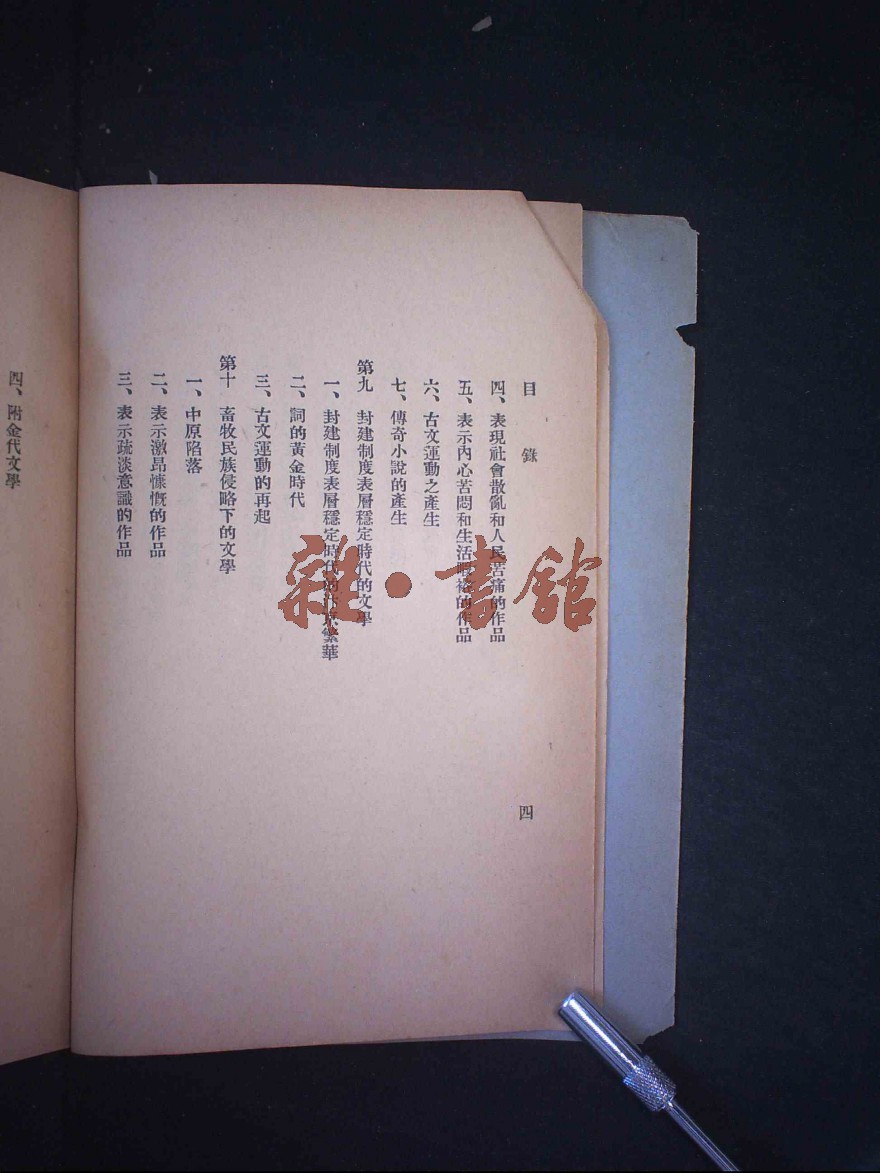 目錄
四
四、表現社會散亂和人民苦痛的作品
五、表示內心苦悶和生活的作品
六、古文運動之產生
七、傳奇小說的產生
第九 封建制度表層穩定時代的文學
一、封建制度表層穩定時代的繁華
二、詞的黃金時代
三、古文運動的再起
第十 畜牧民族侵略下的文學
一、中原陷落
二、表示激昂慷慨的作品
三、表示疏淡意識的作品
四、附金代文學
雜·書館